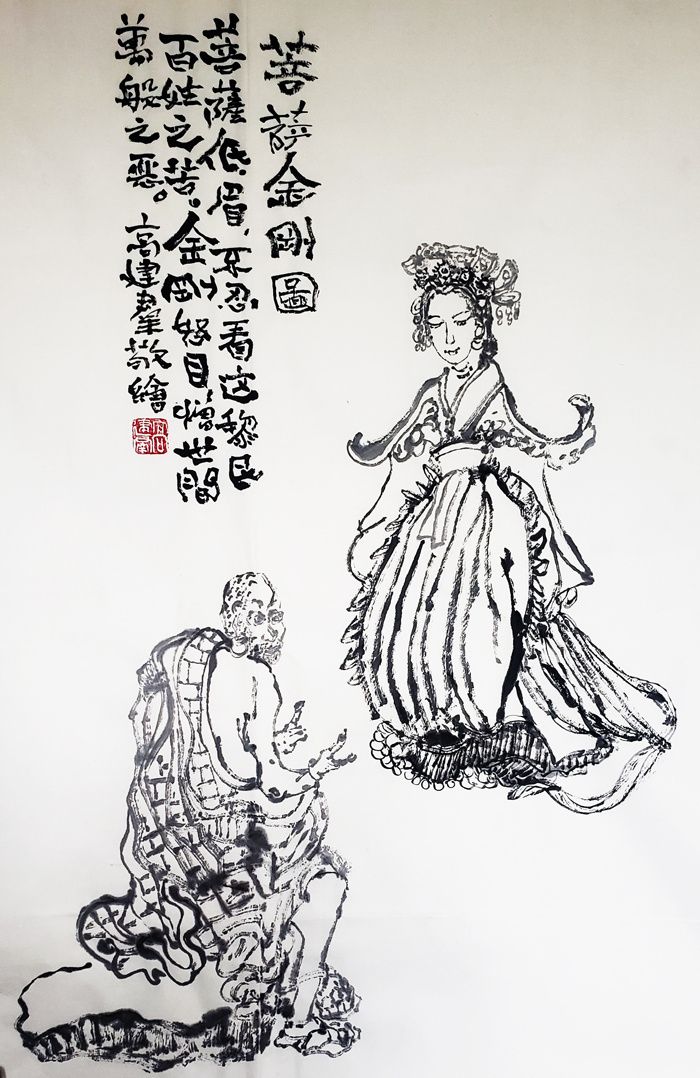 菩萨金剛圖
菩薩低眉，不忍看这黎民
百姓之苦，金剛怒目，憎世間
萬般之惡。高建羣敬繪